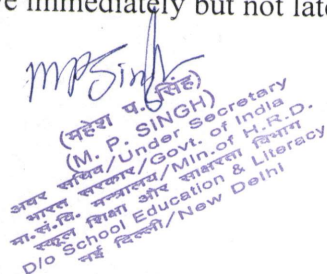 e immediately but not late
MPSingh
(महेश प. सिंह)
(M. P. SINGH)
अवर सचिव/Under Secretary
भारत सरकार/Govt. of India
मा.सं.वि. मन्त्रालय/Min.of H.R.D.
स्कूल शिक्षा और साक्षरता विभाग
D/o School Education & Literacy
नई दिल्ली/New Delhi